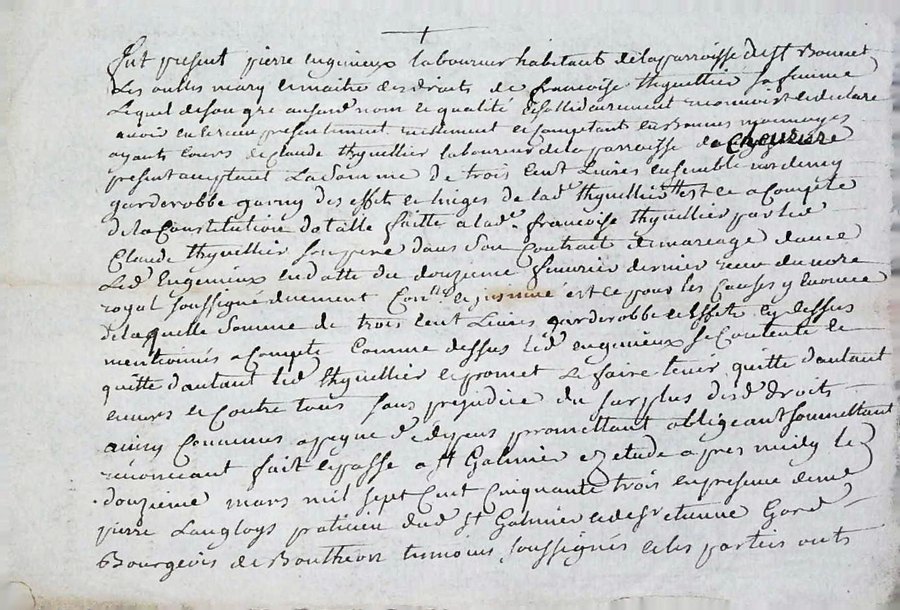 Fut present pierre eugenieux laboureur habitant de la parroisse de St Bonnet
Les oulles mary et maitre des droits de francoise thyuellier sa femme
Lequel de son gré au susd nom et qualité et solidairement reconnoist et declare
avoir eu et receu presentement reellement et comptant en bonnes monnoyes
ayants cours de Claude thyuellier laboureur de la parroisse de cheurier
present acceptant La somme de trois cent Livres ensemble un
garderobbe garny des effets et linges de lad thyuellier est ce a compte
de la Constitution dotalle faitte a lad francoise thyuellier par led
Claude thyuellier son pere dans son Contrat de mariage avec
Led Eugenieux en datte du douzieme feuvrier dernier receu du nore
royal soussigné duement Con.lé et insinué est ce pour les Causes y enoncé
de laquelle somme de trois cent Livres garderobbe et effets cy dessus
mentionnés a compte comme dessus led eugenieux se Contente et
quitte d'autant led thyuellier et promet le faire tenir quitte d'autant
envers et Contre tous sans prejudice du surplus desd droits
ainsy Convenus a peyne de depens promettant obligeant soumettant
renonceant fait et passé a St Galmier ez etude apres midy le
douzieme mars mil sept Cent Cinquante trois en presence de me
pierre Langloys praticien dud St Galmier et de sr etienne Gord
Bourgeois de Boutheon temoins soussignés et les parties onts